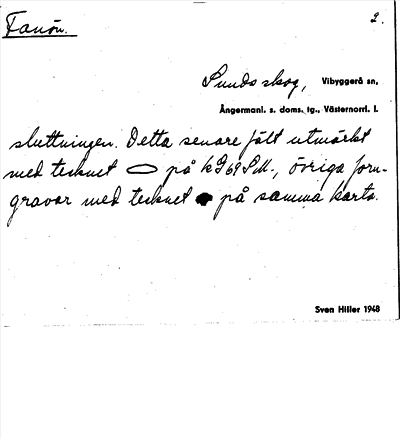 Fanön. 2.
Sundsskog, Vibyggerå sn,
Ångermanl. s. doms. tg., Västernorrl. l.
sluttningen. Detta senare fält utmärkt
med tecknet på kG 69 SM., övriga forn-
gravar med tecknet på samma karta.
Sven Hiller 1948